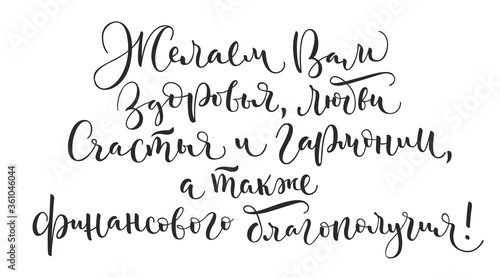 Желаем Вам
Здоровья, любви
Счастья и Гармонии,
а также
финансового благополучия!
Adobe Stock | #361046044